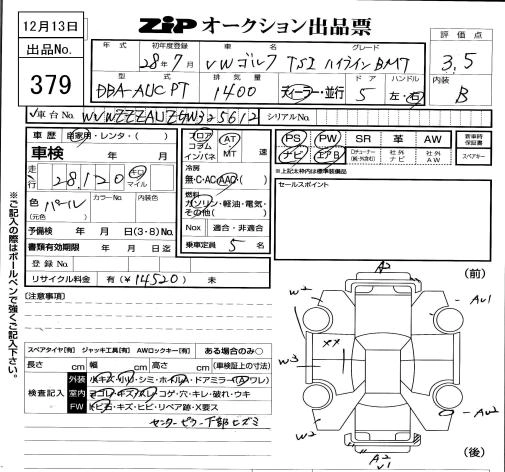 12月13日
ZIP オークション出品票
出品No.
379
年式
初年度登録
車名
グレード
28年7月
VWゴルフ TSI ハイラインBMT
型式
排気量
ドア
ハンドル
DBA-AUCPT
1400
ディーラー・並行
5
左・右
評価点
3.5
内装
B
車台No.
WVWZZZAUZGW325612
シリアルNo.
車歴
自家用・レンタ・( )
車検
年 月
走行
28,120
マイル
色
(元色)
パール
カラーNo.
内装色
予備検 年 月 日(3・8)No.
書類有効期限 年 月 日迄
登録No.
リサイクル料金 有(¥14520)未
フロア
コラム
インパネ
AT
MT
速
冷房
無・C・AC・AAC( )
燃料
ガソリン・軽油・電気・
その他( )
Nox 適合・非適合
乗車定員 5 名
PS
PW
SR
革
AW
ナビ
エアB
社外
ナビ
社外
AW
新車時
保証書
スペアキー
※上記太枠内は標準装備品
セールスポイント
※ご記入の際はボールペンで強くご記入下さい。
[注意事項]
スペアタイヤ[有] ジャッキ工具[有] AWロックキー[有] ある場合のみ○
長さ cm
幅 cm
高さ cm
(車検証上の寸法)
検査記入
外装
小キズ・小凹・シミ・ホイルA・ドアミラー(A・ワレ)
室内
ヨゴレ・キズ・スレ・コゲ・穴・キレ・破れ・ウキ
FW
トビ石・キズ・ヒビ・リペア跡・X要ス
センターピラー下部ヒズミ
(前)
A2
W2
AU1
W3
XX
W2
AU2
A2
(後)